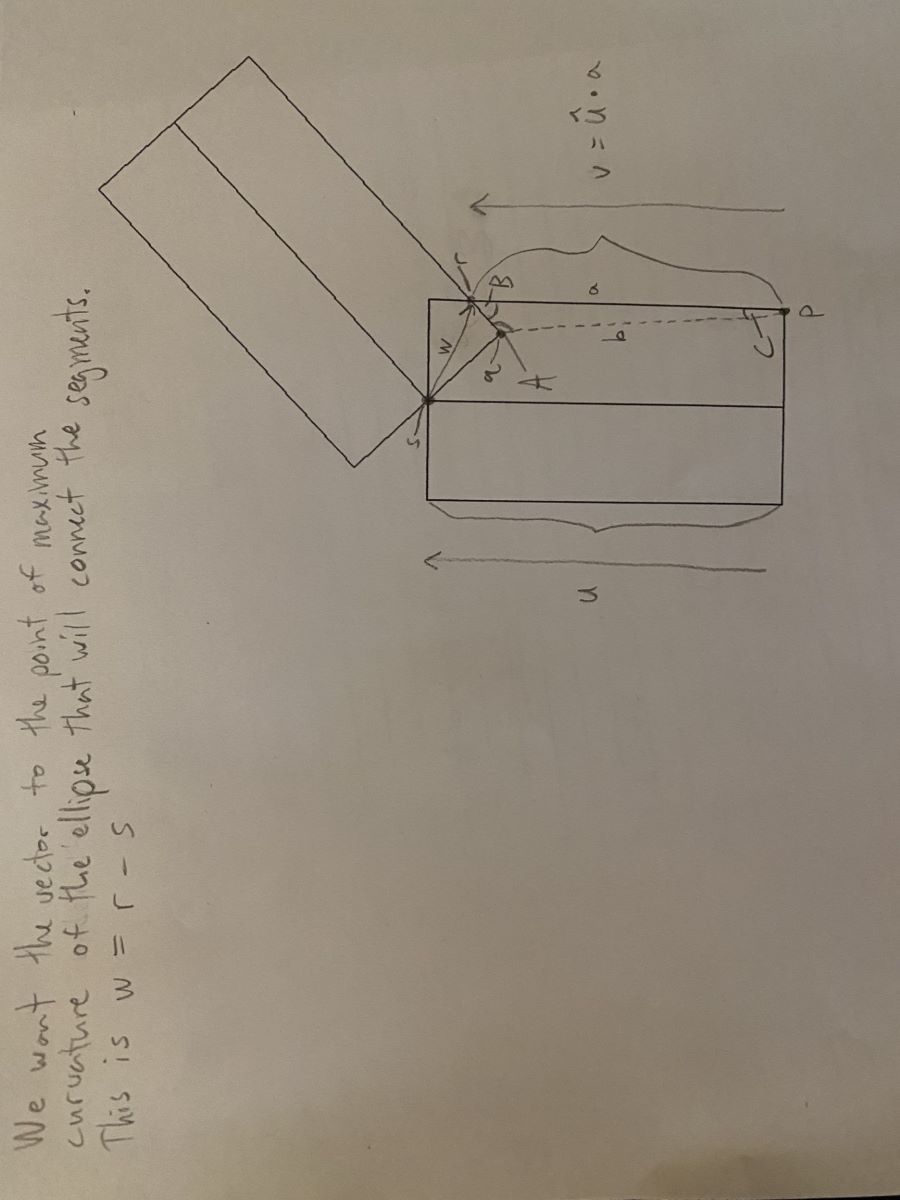 We want the vector to the point of maximum
curvature of the ellipse that will connect the segments.
This is w = r - s
s
w
r
q
B
A
u
a
v = û · a
b
C
P